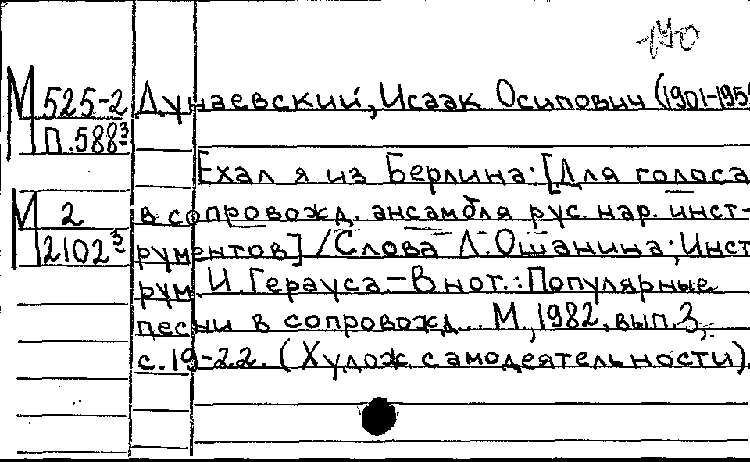 М 525-2 Дунаевский, Исаак Осипович (1901-195
П.588³
Ехал я из Берлина: [Для голоса
М 2 в сопровожд. ансамбля рус. нар. инст-
2102³ рументов] / Слова Л. Ошанина; Инст
рум. И. Герауса. – В нот.: Популярные
песни в сопровожд... М., 1982, вып. 3,
с. 19-22. (Худож. самодеятельности).